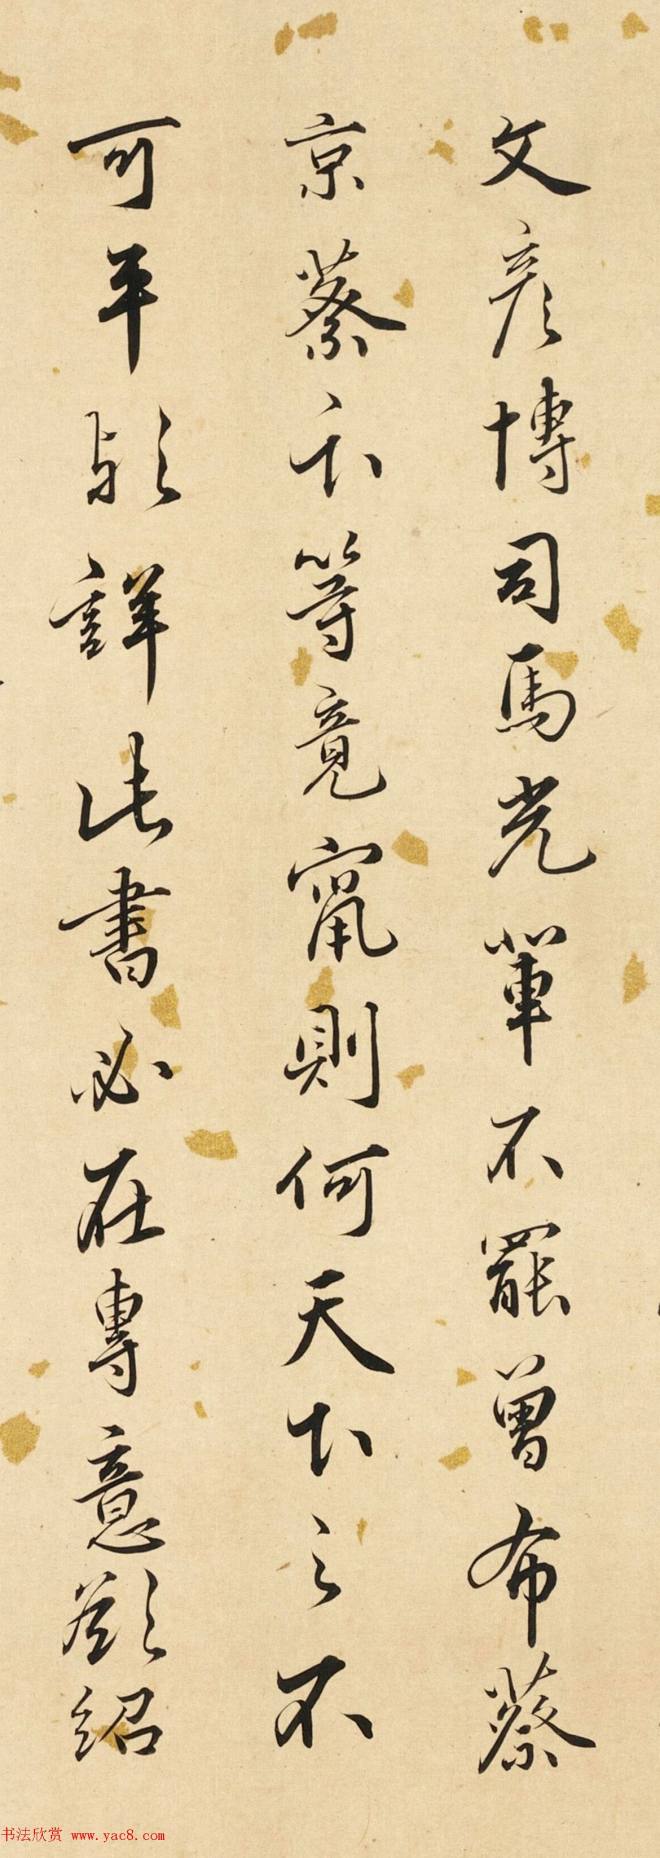 文彥博司馬光輩不罷曾布蔡
京蔡卞等竟竄則何天下之不
可平歟詳此書必在專意欲紹
书法欣赏 www.yac8.com